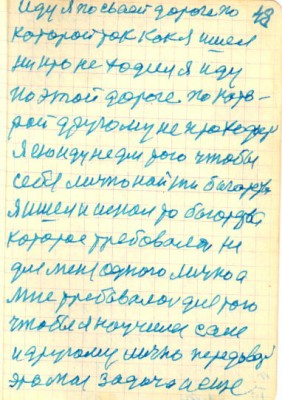 иду я по своой дороге по
которой так как я ишел
никто не ходил я иду
по этой дороге по кото-
рой другому не проходил
я ею иду не для того чтобы
себе лично найти багатсва
я ишел и искал то багатсва
которое требовалос не
для меня одного лично а
мне требовалос для того
чтобы я научился сам
и другому лично передовал
эта моя задача и еще